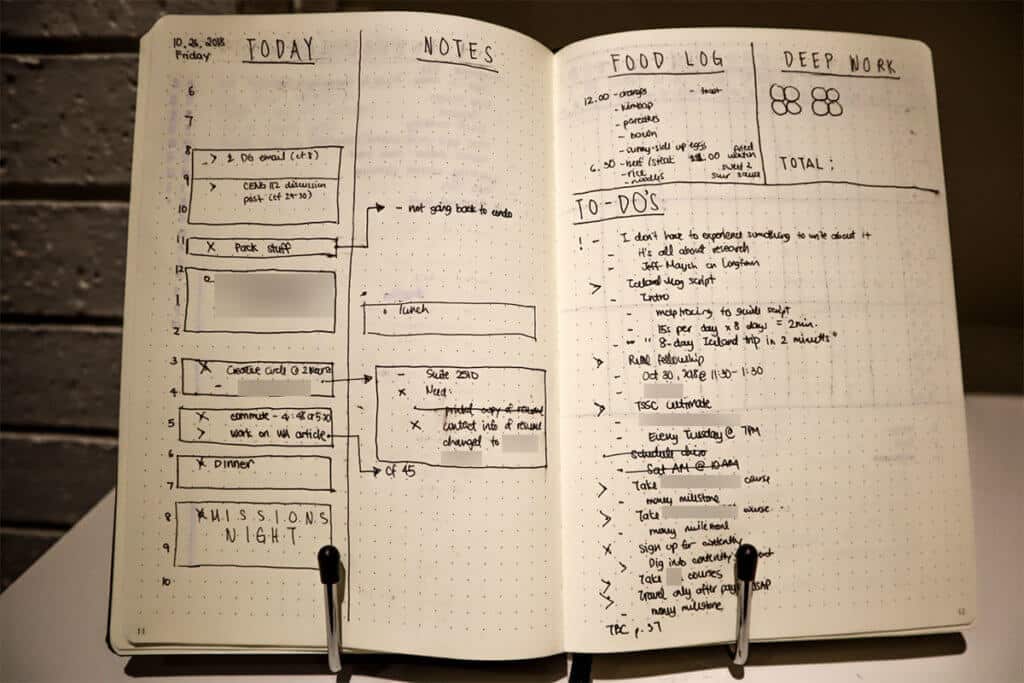 10.26.2018
Friday
TODAY
6
7
8
> 2 DG email (cf 8)
9
> CENG 112 discussion
post (cf 29-30)
10
11
x Pack stuff
12
1
2
3
x Creative Circle @
4
-
5
x commute - 4:45 or 5:30
> Work on article
6
x Dinner
7
8
x MISSIONS
NIGHT
9
10
11
NOTES
- not going back to condo
Lunch
- Suite 2510
x Need:
printed copy of resume
x contact info of resume
changed to
cf 45
FOOD LOG
12.00 - oranges
- toast
- kimbap
- pancakes
- sunny-side up eggs
6.30 - beef/steak
- rice
- noodles
11.00 fried
wonton
sweet &
sour sauce
DEEP WORK
TOTAL:
TO-DO'S
! - I don't have to experience something to write about it
- it's all about research
- Jeff Maysh on Longform
> Iceland vlog script
- Intro
- map tracing to guide script
- 15s per day x 8 days = 2min.
- "8-day Iceland trip in 2 minutes"
> fellowship
- Oct 30, 2018 @ 11:30-1:30
-
> TSSC Ultimate
-
- Every Tuesday @ 7PM
- Sat AM @ 10AM
> Take course
- money milestone
> Take course
- money milestone
x sign up for contently
Dig into contently's
> Take courses
> Travel only after
- money milestone
TBC p. 57